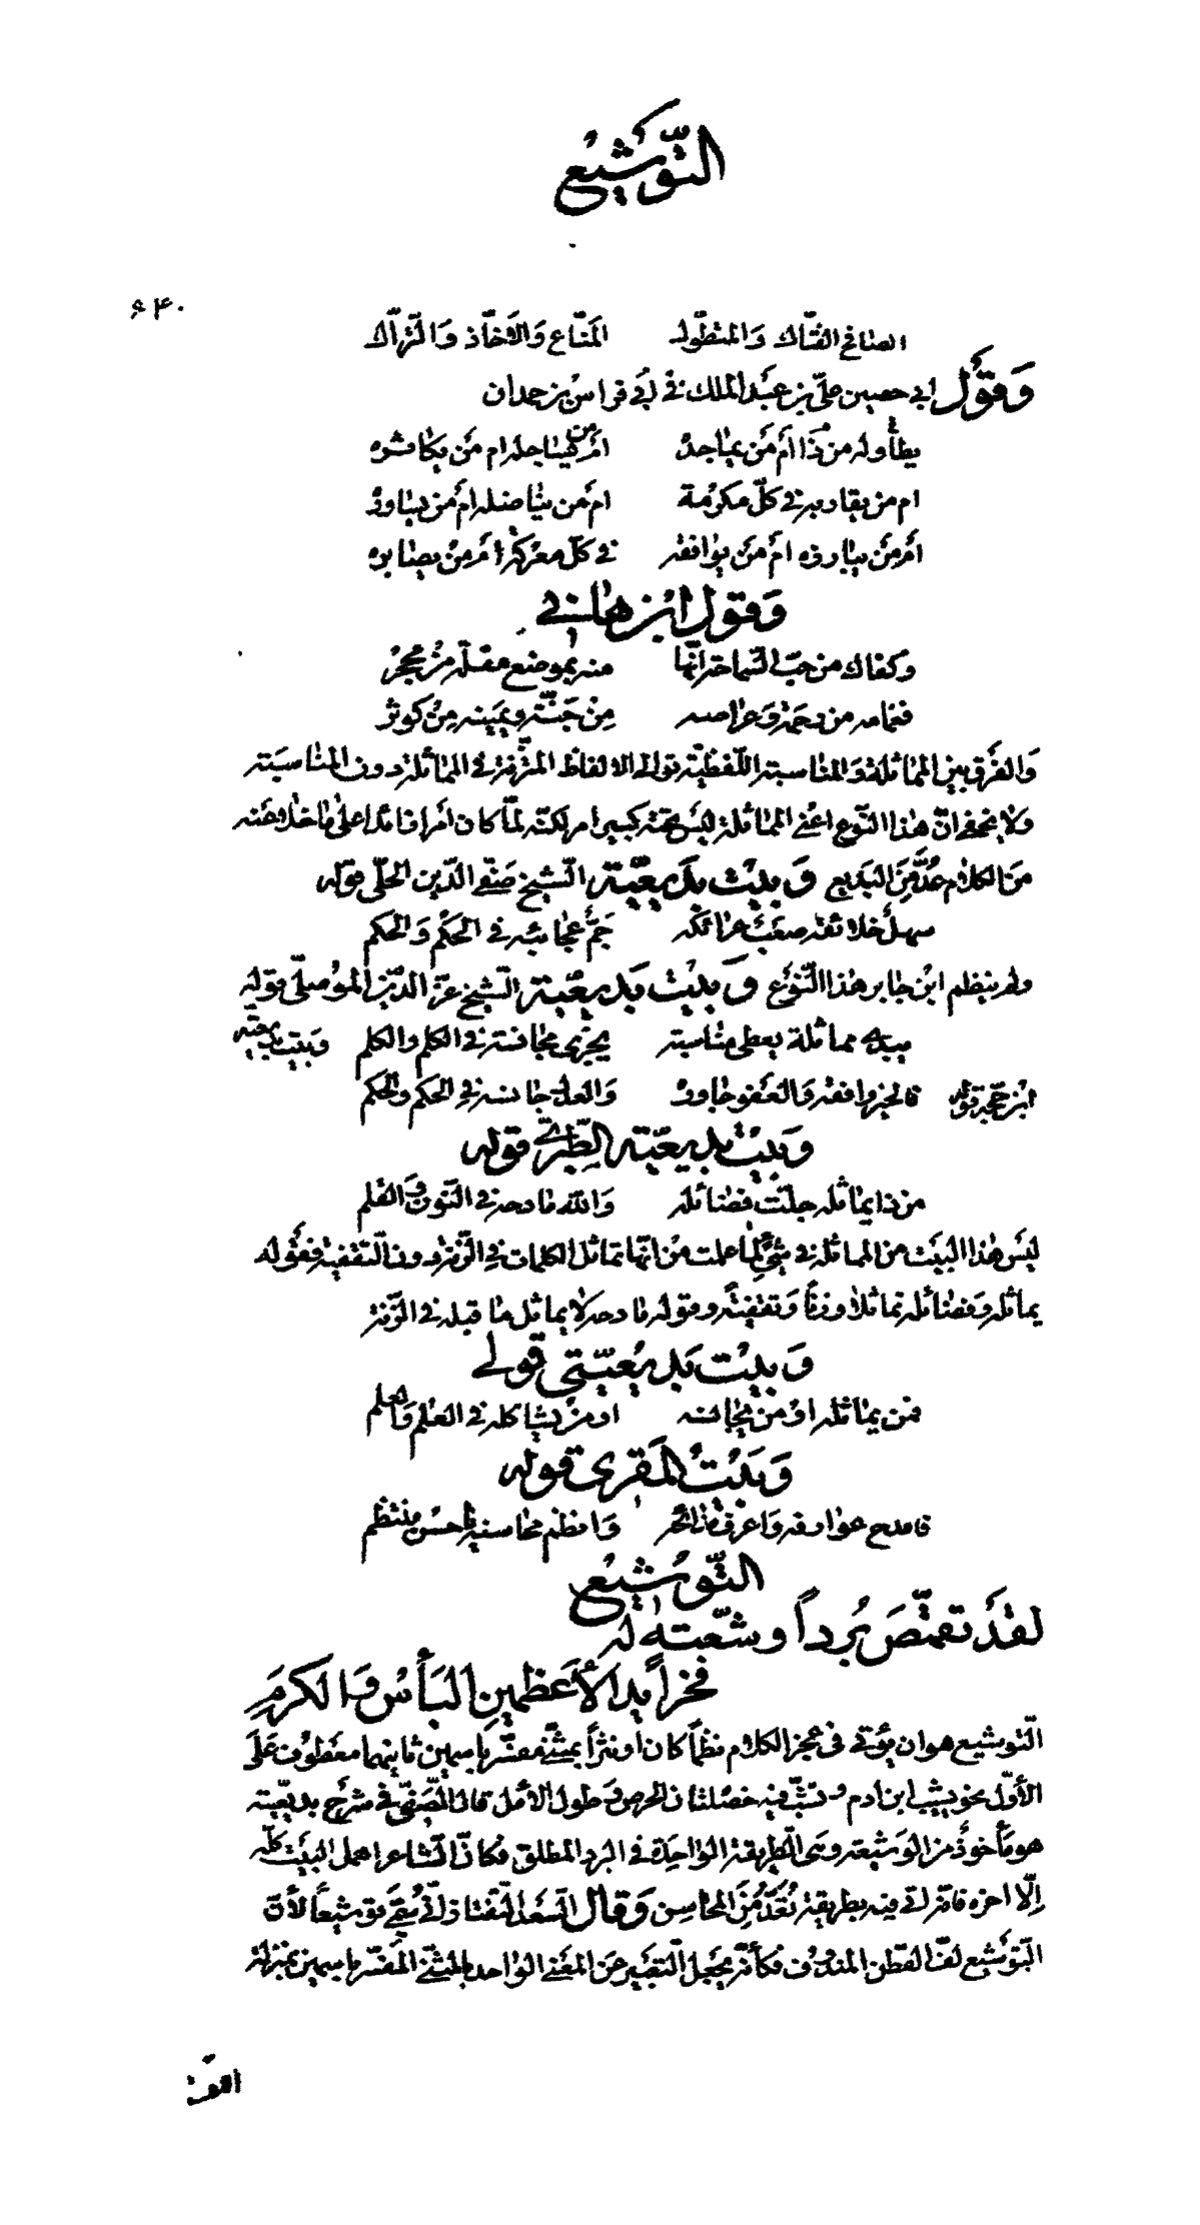 التّوشيع
۶۴۰
الصافح الفتّاك والمتطوّل المنّاع والأخّاذ والترّاك
وقول ابي حصين عليّ بن عبد الملك في أبي فراس بن حمدان
يطاوله من ذا أم من يماجده أم من يساجله ام من يكاثره
ام من يقاربه في كلّ مكرمة ام من يناضله ام من يساوره
أم من يبارزه ام من يوافقه في كلّ معركة ام من يصابره
وقول ابن هانئ
وكفاك من حبّ السّماحة انّها منه بموضع مقلة من محجر
فغمامه من رحمة وعراصه من جنّة ويمينه من كوثر
والفرق بين المماثلة والمناسبة اللّفظيّة توالي الالفاظ المتّزنة في المماثلة دون المناسبة
ولا يخفى انّ هذا النّوع اعني المماثلة ليس تحته كبير امر لكنّه لمّا كان أمرا زائدا على ما خلا عنه
من الكلام عُدّ من البديع وبيت بديعيّة الشّيخ صفيّ الدّين الحلّي قوله
سهل خلائقه صعب عرائكه جمّ عجائبه في الحكم والحكم
ولم ينظم ابن جابر هذا النّوع وبيت بديعيّة الشّيخ عزّ الدّين الموصلي قوله
يبدي مماثلة يعطي مناسبة يجزي مجانسة في الكلم والكلم وبيت بديعيّة
ابن حجة قوله فالخير وافقه والعفو جاوره والعدل جانسه في الحكم والحكم
وبيت بديعيّة الطّبريّ قوله
من ذا يماثله جلّت فضائله والله مادحه في النّون والقلم
ليس هذا البيت من المماثلة في شيء لما علمت من انّها تماثل الكلمات في الزّنة دون التّقفية فقوله
يماثله وفضائله تماثلا وزناً وتقفيةً وقوله مادحه لا يماثل ما قبله في الزّنة
وبيت بديعيّتي قولي
فمن يماثله او من يجانسه او من يشاكله في العلم والعلم
وبيت المقري قوله
فامدح عوارفه واعرف وانظم محاسنه باحسن منتظم
التّوشيع
لقد تقمّص بُرداً وشّعته له
فخراً يد الأعظمين البأس والكرم
التّوشيع هو ان يؤتى في عجز الكلام نظماً كان أو نثراً بمثنّى مفسّر باسمين ثانيهما معطوف على
الأوّل نحو يشيب ابن آدم وتشبّ فيه خصلتان الحرص وطول الأمل قال الصّفيّ في شرح بديعيّته
هو مأخوذ من الوشيعة وهي الطّريقة الواحدة في البرد المطلق فكانّ الشّاعر اهمل البيت كلّه
إلّا اخره فانّه اتى فيه بطريقة تُعدّ من المحاسن وقال السّعد التّفتازاني سُمّي توشيعاً لأنّ
التّوشيع لفّ القطن المندوف فكأنّه يجعل التّعبير عن المعنى الواحد بالمثنّى المفسّر باسمين بمنزلة